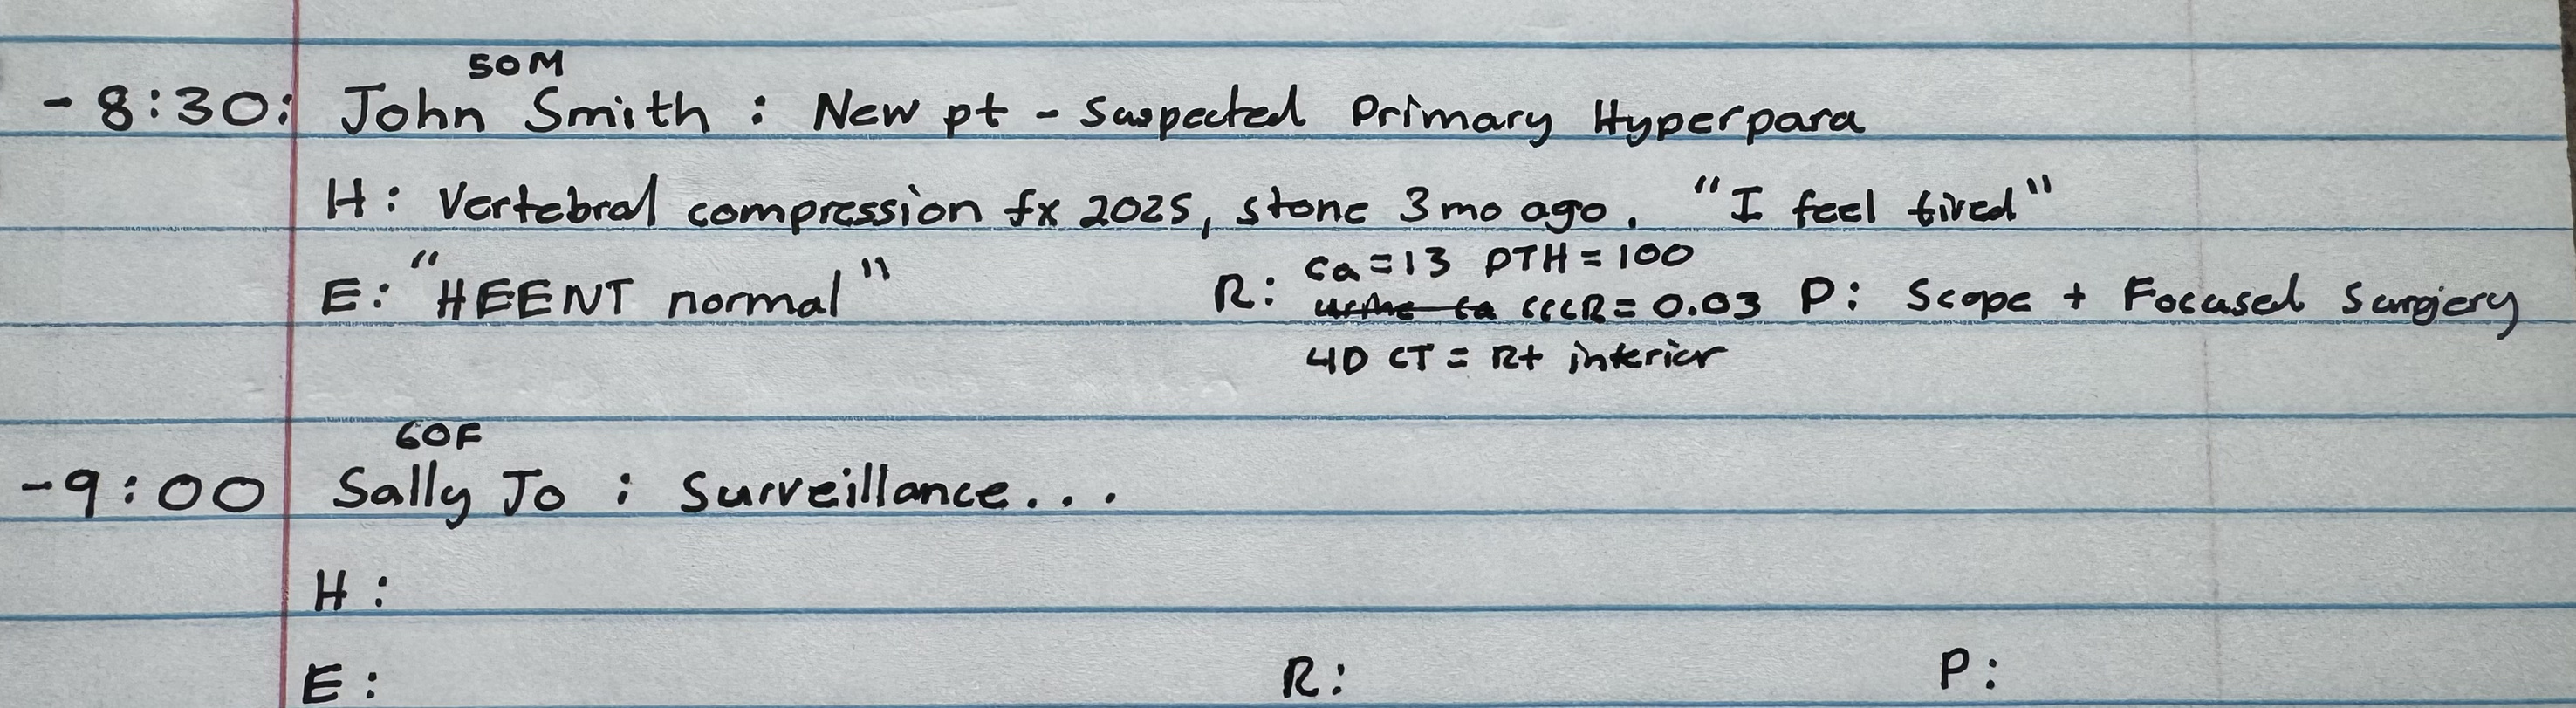 50M
-8:30: John Smith : New pt - suspected Primary Hyperpara
H: Vertebral compression fx 2025, stone 3 mo ago. "I feel tired"
Ca = 13 PTH = 100
E: "HEENT normal" R: CCCR = 0.03 P: Scope + Focused Surgery
4D CT = Rt inferior
60F
-9:00 Sally Jo : Surveillance...
H:
E: R: P: